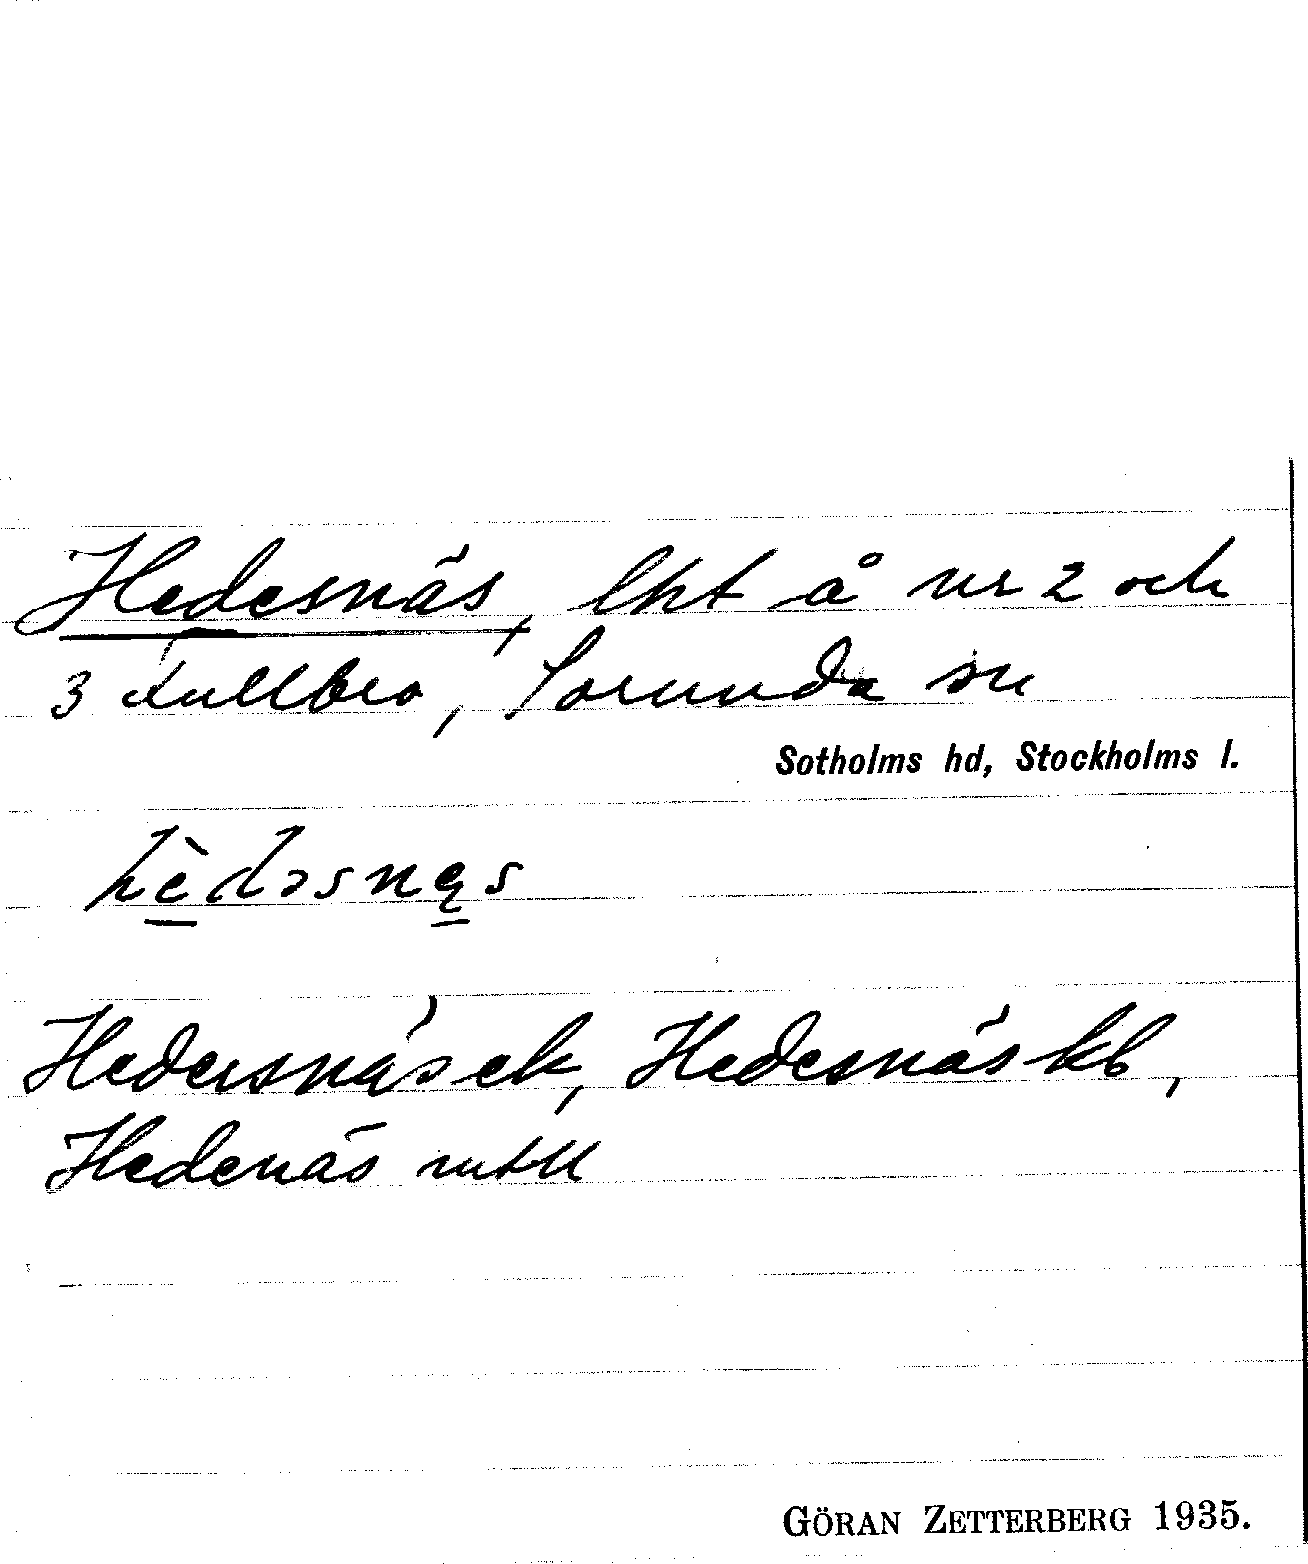 Hedesnäs, lht å nr 2 och
3 Fullbro, Sorunda sn
Sotholms hd, Stockholms l.
hèdəsnęs
Hedersnäs ek, Hedesnäs kb,
Hedenäs mtll
GÖRAN ZETTERBERG 1935.